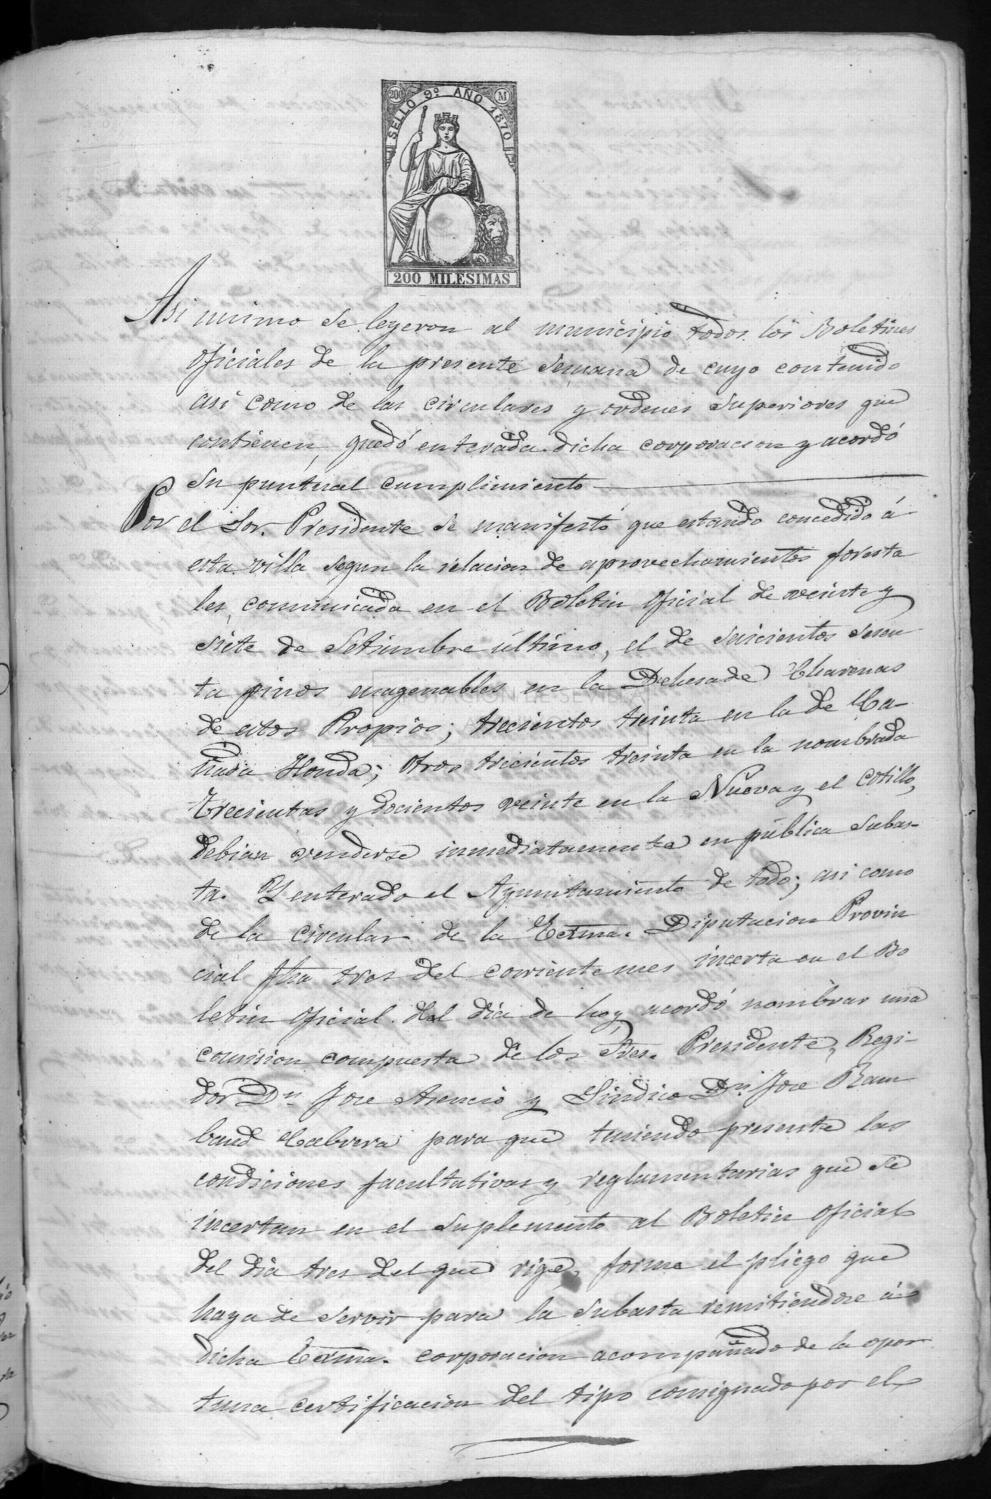 200 M
SELLO 9º AÑO 1870
200 MILESIMAS
Asi mimo se leyeron al municipio todos los Boletines
Oficiales de la presente Semana de cuyo contenido
asi como de las circulares y ordenes Superiores que
contienen, quedó enterada dicha corporacion y acordó
su puntual cumplimiento
Por el Sor. Presidente se manifestó que estando concedido á
esta villa segun la relacion de aprovechamientos foresta
les, comunicada en el Boletin Oficial de veinte y
siete de Setiembre último, el de seiscientos sesen
ta pinos enagenables en la Dehesa de Charenas
de estos Propios; trescientos treinta en la de Ca-
ñada Honda; Otros trescientos treinta en la nombrada
Trecientas y docientos veinte en la Nueva y el Cotillo,
debian venderse inmediatamente en pública Subas-
ta. Y enterado el Ayuntamiento de todo; asi como
de la circular de la Ecxma. Diputacion Provin
cial fha tres del corriente mes incerta en el Bo
letin Oficial del dia de hoy acordó nombrar una
comision compuesta de los Sres. Presidente, Regi-
dor Dn Jose Asencio y Sindico Dn Jose Ram
baud Cabrera para que teniendo presente las
condiciones facultativas y reglamentarias que se
incertan en el Suplemento al Boletin Oficial
del dia tres del que rige, forme el pliego que
haya de Servir para la Subasta remitiendose á
dicha Ecxma. corporacion acompañado de la opor
tuna certificacion del tipo consignado por el